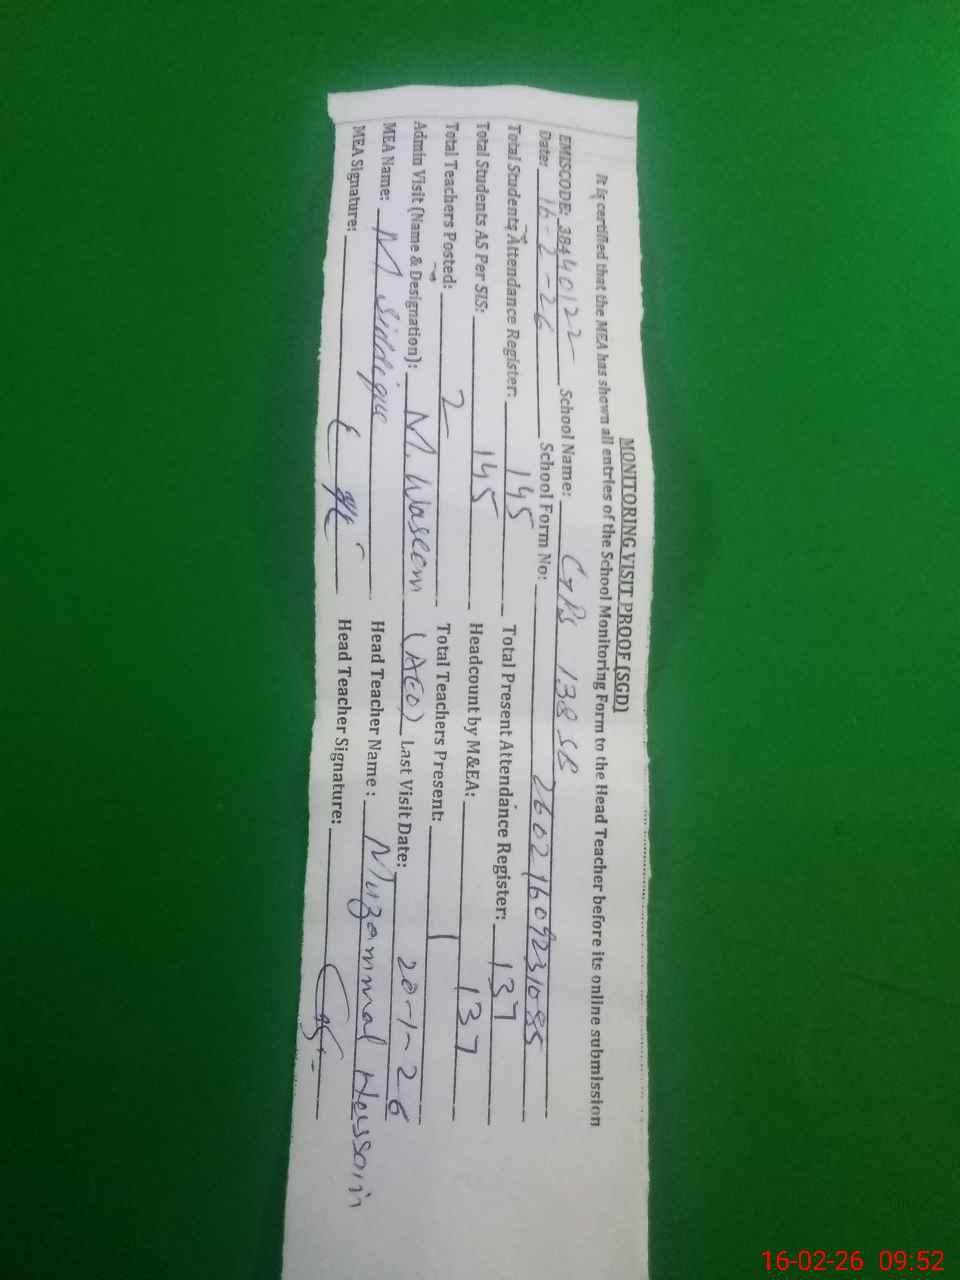 MONITORING VISIT PROOF (SGD)
It is certified that the MEA has shown all entries of the School Monitoring Form to the Head Teacher before its online submission
EMISCODE: 38440122 School Name: GPS 138 SB
Date: 16-2-26 School Form No: 26021609231085
Total Students Attendance Register: 145 Total Present Attendance Register: 137
Total Students AS Per SIS: 145 Headcount by M&EA: 137
Total Teachers Posted: 2 Total Teachers Present: 1
Admin Visit (Name & Designation): M. Waseem (AEO) Last Visit Date: 20-1-26
MEA Name: M Siddique Head Teacher Name : Muzammal Hussain
MEA Signature: Head Teacher Signature:
16-02-26 09:52